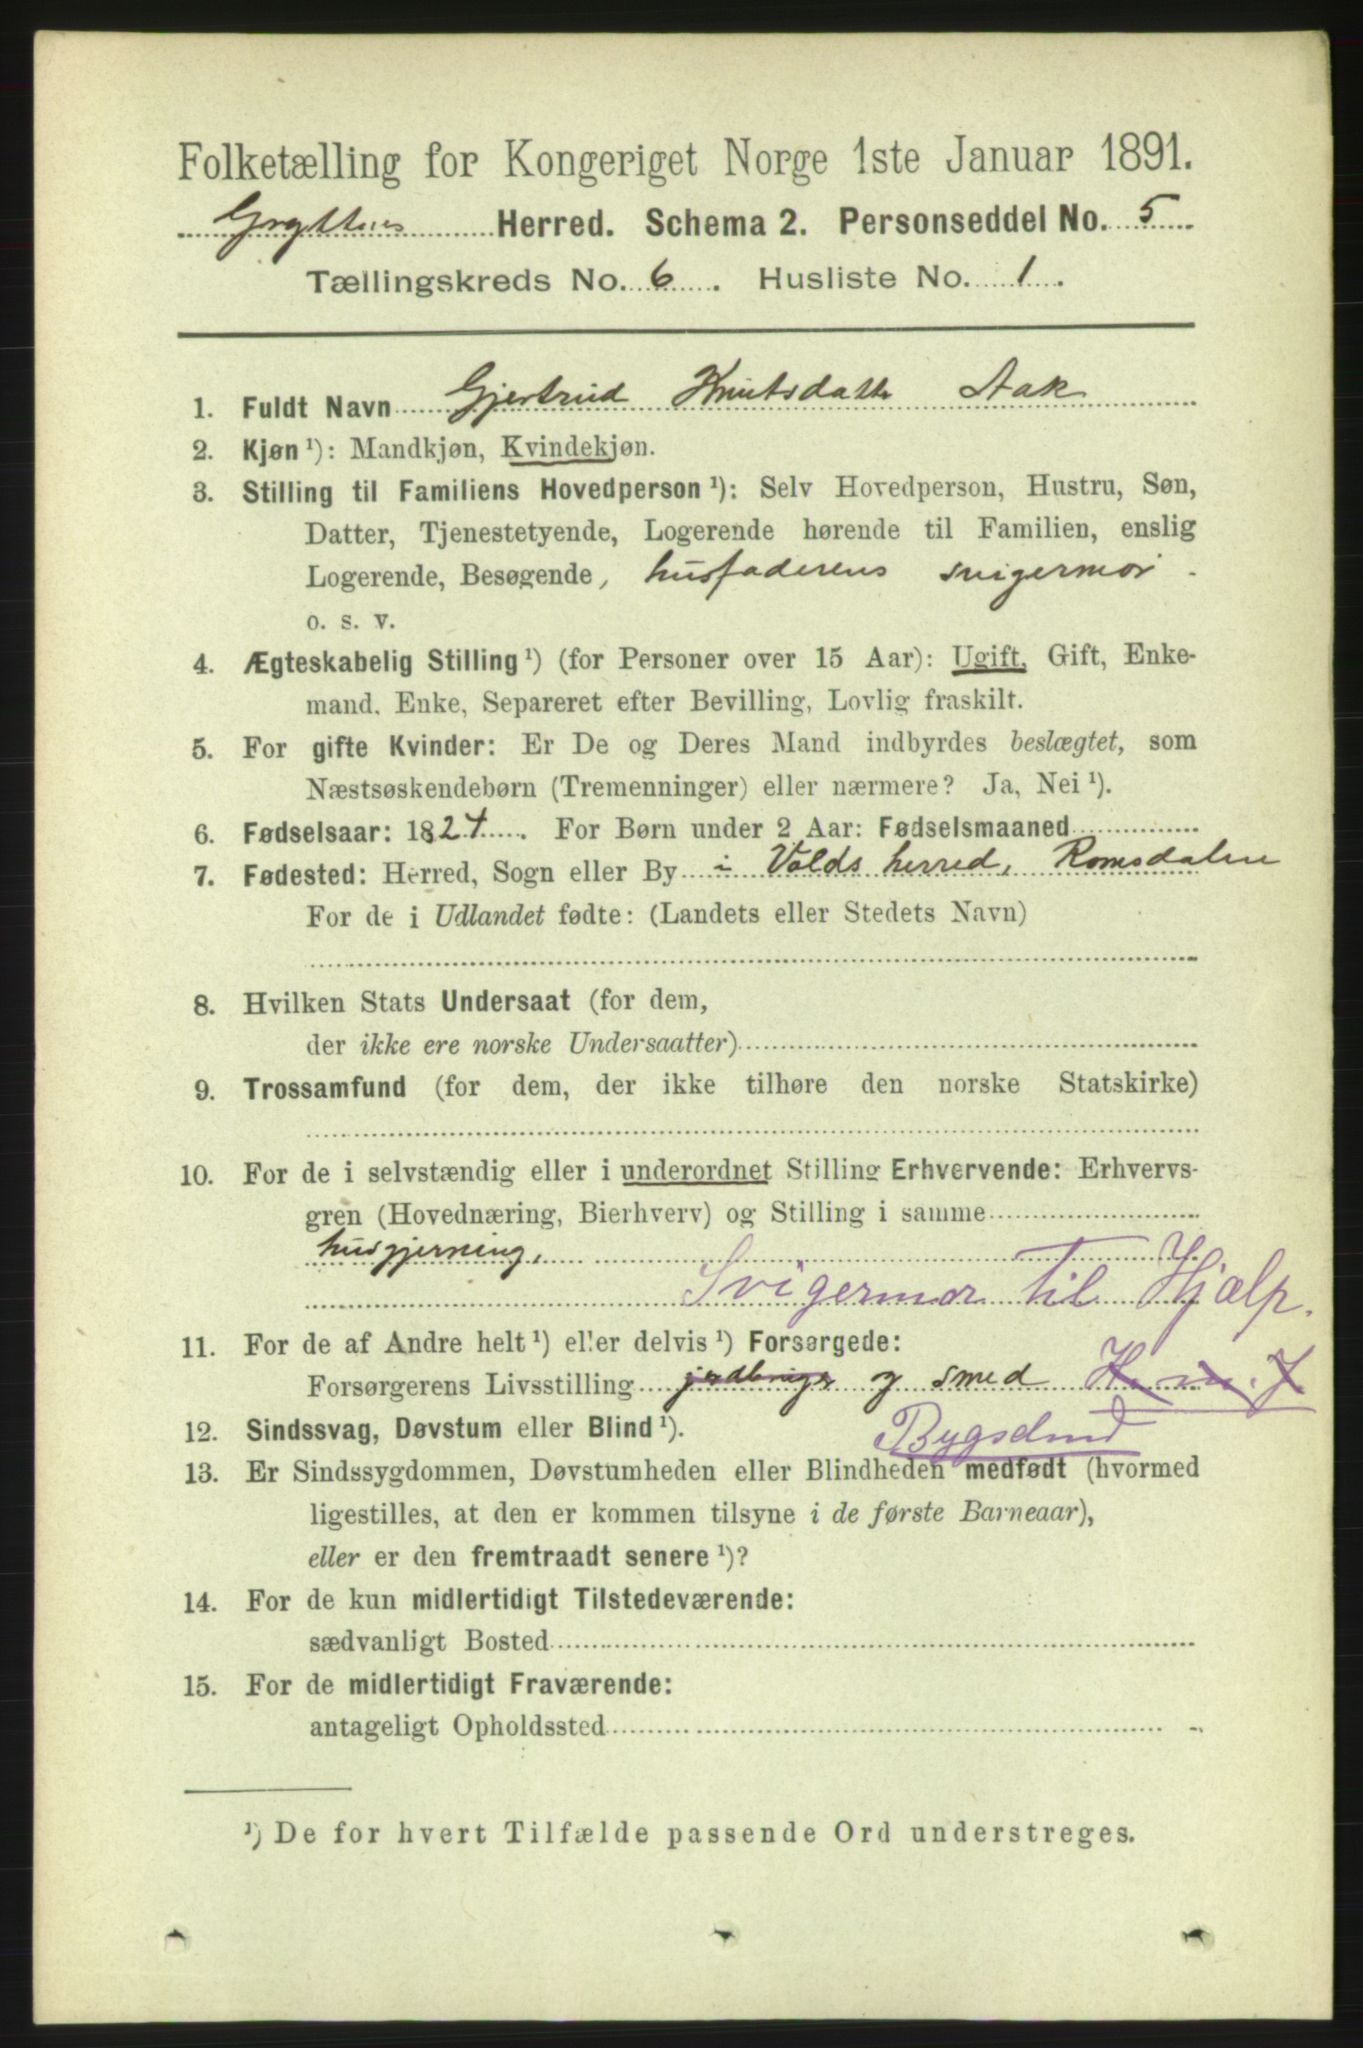 Folketælling for Kongeriget Norge 1ste Januar 1891.
Gryttens Herred. Schema 2. Personseddel No. 5
Tællingskreds No. 6. Husliste No. 1.
1. Fuldt Navn Gjertrud Knutsdatter Aak
2. Kjøn ¹): Mandkjøn, Kvindekjøn.
3. Stilling til Familiens Hovedperson ¹): Selv Hovedperson, Hustru, Søn,
Datter, Tjenestetyende, Logerende hørende til Familien, enslig
Logerende, Besøgende, husfaderens svigermor.
o. s. v.
4. Ægteskabelig Stilling ¹) (for Personer over 15 Aar): Ugift, Gift, Enke-
mand, Enke, Separeret efter Bevilling, Lovlig fraskilt.
5. For gifte Kvinder: Er De og Deres Mand indbyrdes beslægtet, som
Næstsøskendebørn (Tremenninger) eller nærmere? Ja, Nei ¹).
6. Fødselsaar: 1824. For Børn under 2 Aar: Fødselsmaaned
7. Fødested: Herred, Sogn eller By i Volds herred, Romsdalen
For de i Udlandet fødte: (Landets eller Stedets Navn)
8. Hvilken Stats Undersaat (for dem,
der ikke ere norske Undersaatter)
9. Trossamfund (for dem, der ikke tilhøre den norske Statskirke)
10. For de i selvstændig eller i underordnet Stilling Erhvervende: Erhvervs-
gren (Hovednæring, Bierhverv) og Stilling i samme
husgjerning.
Svigermor til Hjælp.
11. For de af Andre helt ¹) eller delvis ¹) Forsørgede:
Forsørgerens Livsstilling jordbruger og smed H. m. J
Bygselmd
12. Sindssvag, Døvstum eller Blind ¹).
13. Er Sindssygdommen, Døvstumheden eller Blindheden medfødt (hvormed
ligestilles, at den er kommen tilsyne i de første Barneaar),
eller er den fremtraadt senere ¹)?
14. For de kun midlertidigt Tilstedeværende:
sædvanligt Bosted
15. For de midlertidigt Fraværende:
antageligt Opholdssted
¹) De for hvert Tilfælde passende Ord understreges.